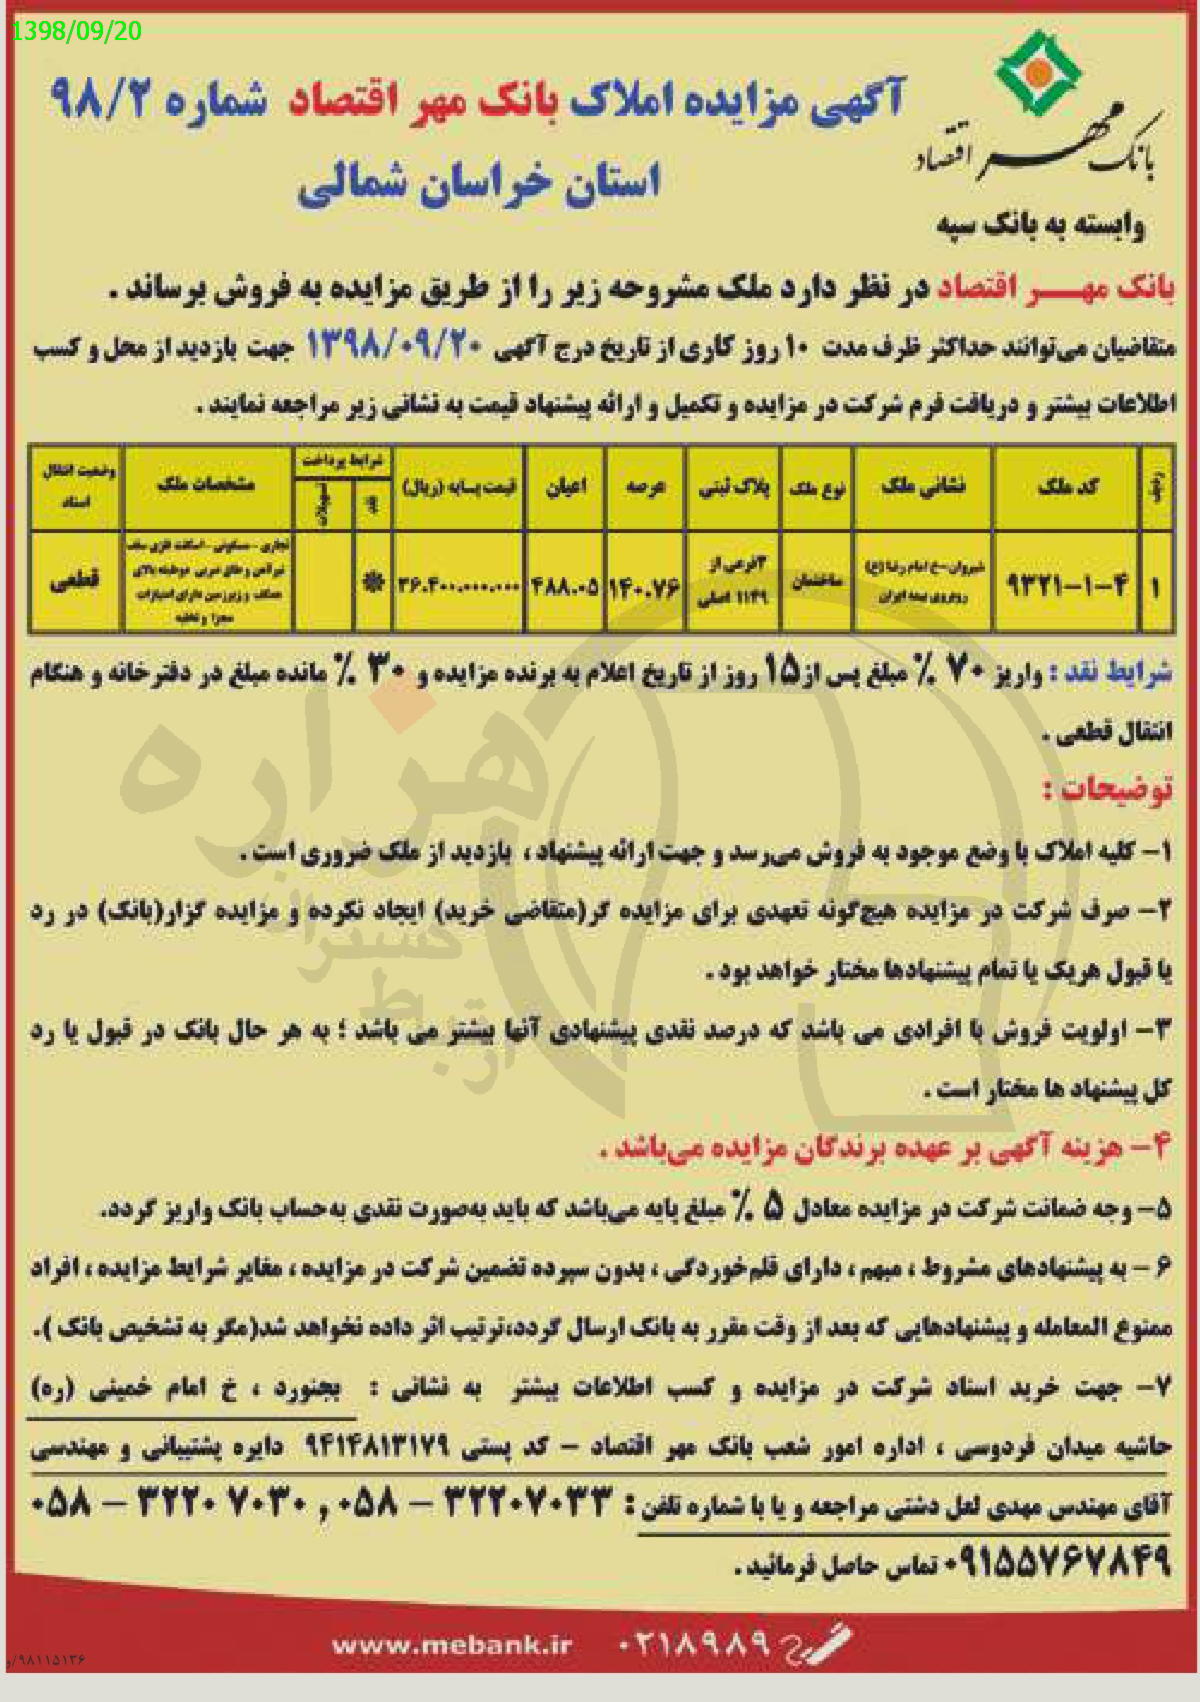 1398/09/20
بانک مهر اقتصاد
وابسته به بانک سپه
آگهی مزایده املاک بانک مهر اقتصاد شماره ۹۸/۲
استان خراسان شمالی
بانک مهـــر اقتصاد در نظر دارد ملک مشروحه زیر را از طریق مزایده به فروش برساند .
متقاضیان می‌توانند حداکثر ظرف مدت ۱۰ روز کاری از تاریخ درج آگهی ۱۳۹۸/۰۹/۲۰ جهت بازدید از محل و کسب
اطلاعات بیشتر و دریافت فرم شرکت در مزایده و تکمیل و ارائه پیشنهاد قیمت به نشانی زیر مراجعه نمایند .
ردیف کد ملک نشانی ملک نوع ملک پلاک ثبتی عرصه اعیان قیمت پـایه (ریال) شرایط پرداخت نقد تسهیلات مشخصات ملک وضعیت انتقال اسناد
۱ ۹۳۲۱-۱-۴ شیروان-خ امام رضا (ع) روبروی بیمه ایران ساختمان ۳فرعی از ۱۱۴۹ اصلی ۱۴۰.۷۶ ۴۸۸.۰۵ ۳۶.۴۰۰.۰۰۰.۰۰۰ * تجاری - مسکونی - اسکلت فلزی سقف تیرآهن و طاق ضربی دوطبقه بالای همکف و زیرزمین دارای امتیازات مجزا و تخلیه قطعی
شرایط نقد : واریز ۷۰ ٪ مبلغ پس از ۱۵ روز از تاریخ اعلام به برنده مزایده و ۳۰ ٪ مانده مبلغ در دفترخانه و هنگام
انتقال قطعی .
توضیحات :
۱- کلیه املاک با وضع موجود به فروش می‌رسد و جهت ارائه پیشنهاد ، بازدید از ملک ضروری است .
۲- صرف شرکت در مزایده هیچ‌گونه تعهدی برای مزایده گر(متقاضی خرید) ایجاد نکرده و مزایده گزار(بانک) در رد
یا قبول هریک یا تمام پیشنهادها مختار خواهد بود .
۳- اولویت فروش با افرادی می باشد که درصد نقدی پیشنهادی آنها بیشتر می باشد ؛ به هر حال بانک در قبول یا رد
کل پیشنهاد ها مختار است .
۴- هزینه آگهی بر عهده برندگان مزایده می‌باشد .
۵- وجه ضمانت شرکت در مزایده معادل ۵ ٪ مبلغ پایه می‌باشد که باید به‌صورت نقدی به‌حساب بانک واریز گردد.
۶ - به پیشنهادهای مشروط ، مبهم ، دارای قلم‌خوردگی ، بدون سپرده تضمین شرکت در مزایده ، مغایر شرایط مزایده ، افراد
ممنوع المعامله و پیشنهادهایی که بعد از وقت مقرر به بانک ارسال گردد،ترتیب اثر داده نخواهد شد(مگر به تشخیص بانک ).
۷- جهت خرید اسناد شرکت در مزایده و کسب اطلاعات بیشتر به نشانی : بجنورد ، خ امام خمینی (ره)
حاشیه میدان فردوسی ، اداره امور شعب بانک مهر اقتصاد - کد پستی ۹۴۱۴۸۱۳۱۷۹ دایره پشتیبانی و مهندسی
آقای مهندس مهدی لعل دشتی مراجعه و یا با شماره تلفن : ۳۲۲۰۷۰۳۳ - ۰۵۸ , ۳۲۲۰۷۰۳۰ - ۰۵۸
۰۹۱۵۵۷۶۷۸۴۹ تماس حاصل فرمائید .
www.mebank.ir ۰۲۱۸۹۸۹
۹۸۱۱۵۱۳۶/و
هزاره